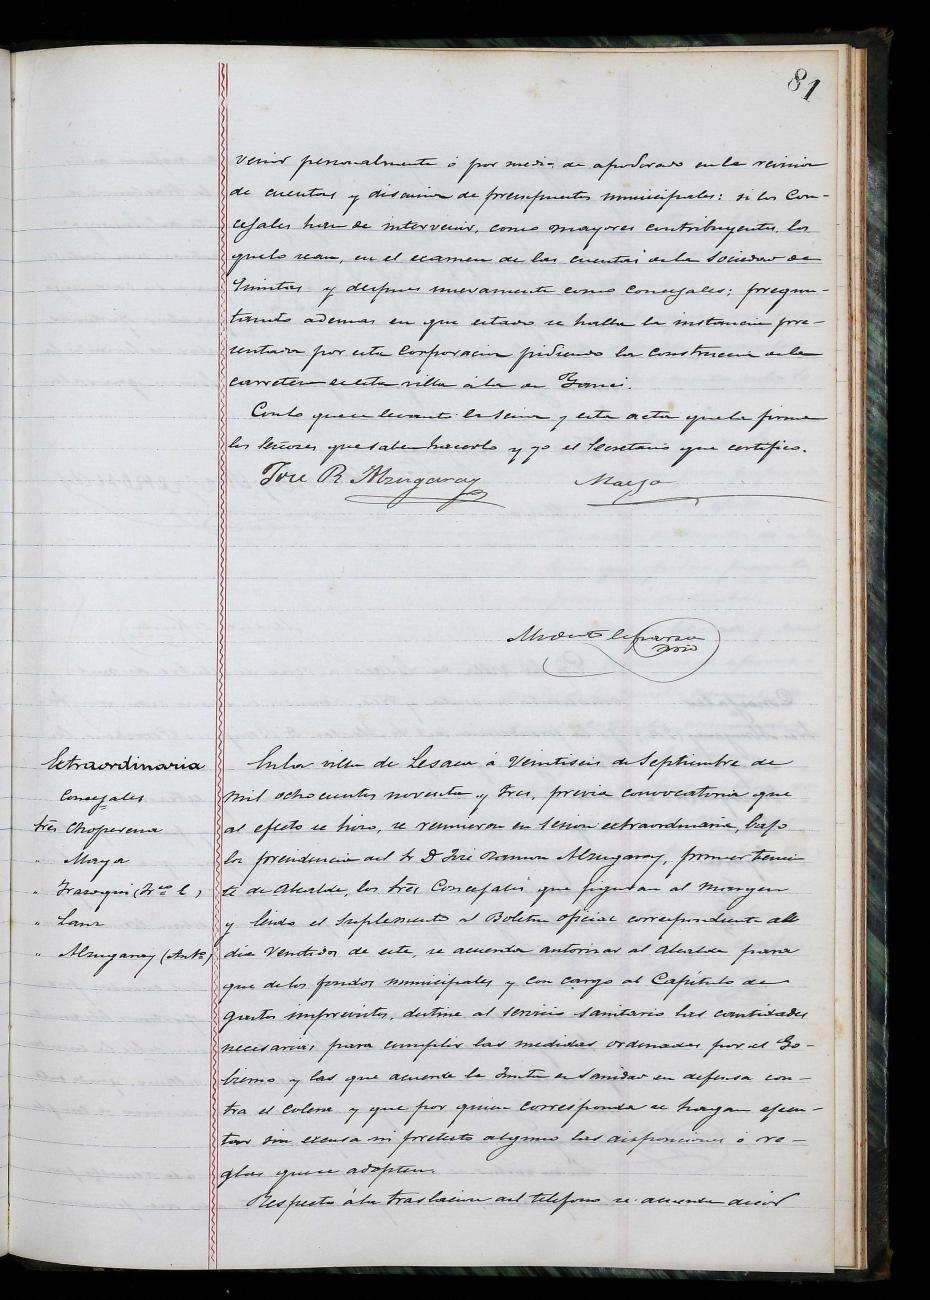 81
venir personalmente ó por medio de apoderado en la revision
de cuentas y discusion de presupuestos municipales: si los Con-
cejales han de intervenir, como mayores contribuyentes, los
que lo sean, en el examen de las cuentas de la Sociedad de
y despues nuevamente como Concejales; pregun-
tando ademas en que estado se halla la instancia pre-
sentada por esta Corporacion pidiendo la construccion de la
carretera de esta villa á la de
Con lo que se levanto la sesion y esta acta que la firman
los Señores que saben hacerlo y yo el Secretario que certifico.
Jose R Alzugaray Maya
Srio
Extraordinaria
Concejales
Sres Choperena
" Maya
" (Fco. )
" Sanz
" Alzugaray (Anto)
En la villa de Lesaca á Veintiseis de Septiembre de
mil ochocientos noventa y tres, previa convocatoria que
al efecto se hizo, se reunieron en sesion extraordinaria, bajo
la presidencia del Sr D José Ramon Alzugaray, primer tenien
te de Alcalde, los Sres Concejales que figuran al margen
y leido el Suplemento al Boletin oficial correspondiente al
dia Veintidos de este, se acuerda autorizar al Alcalde para
que de los fondos municipales y con cargo al Capitulo de
gastos imprevistos, destine al servicio sanitario las cantidades
necesarias para cumplir las medidas ordenadas por el Go-
bierno y las que acuerde la Junta de Sanidad en defensa con-
tra el colera y que por quien corresponda se hagan ejecu-
tar sin excusa ni pretesto alguno las disposiciones ó re-
glas que se adopten.
Respecto á la traslacion del teléfono se acuerda decir